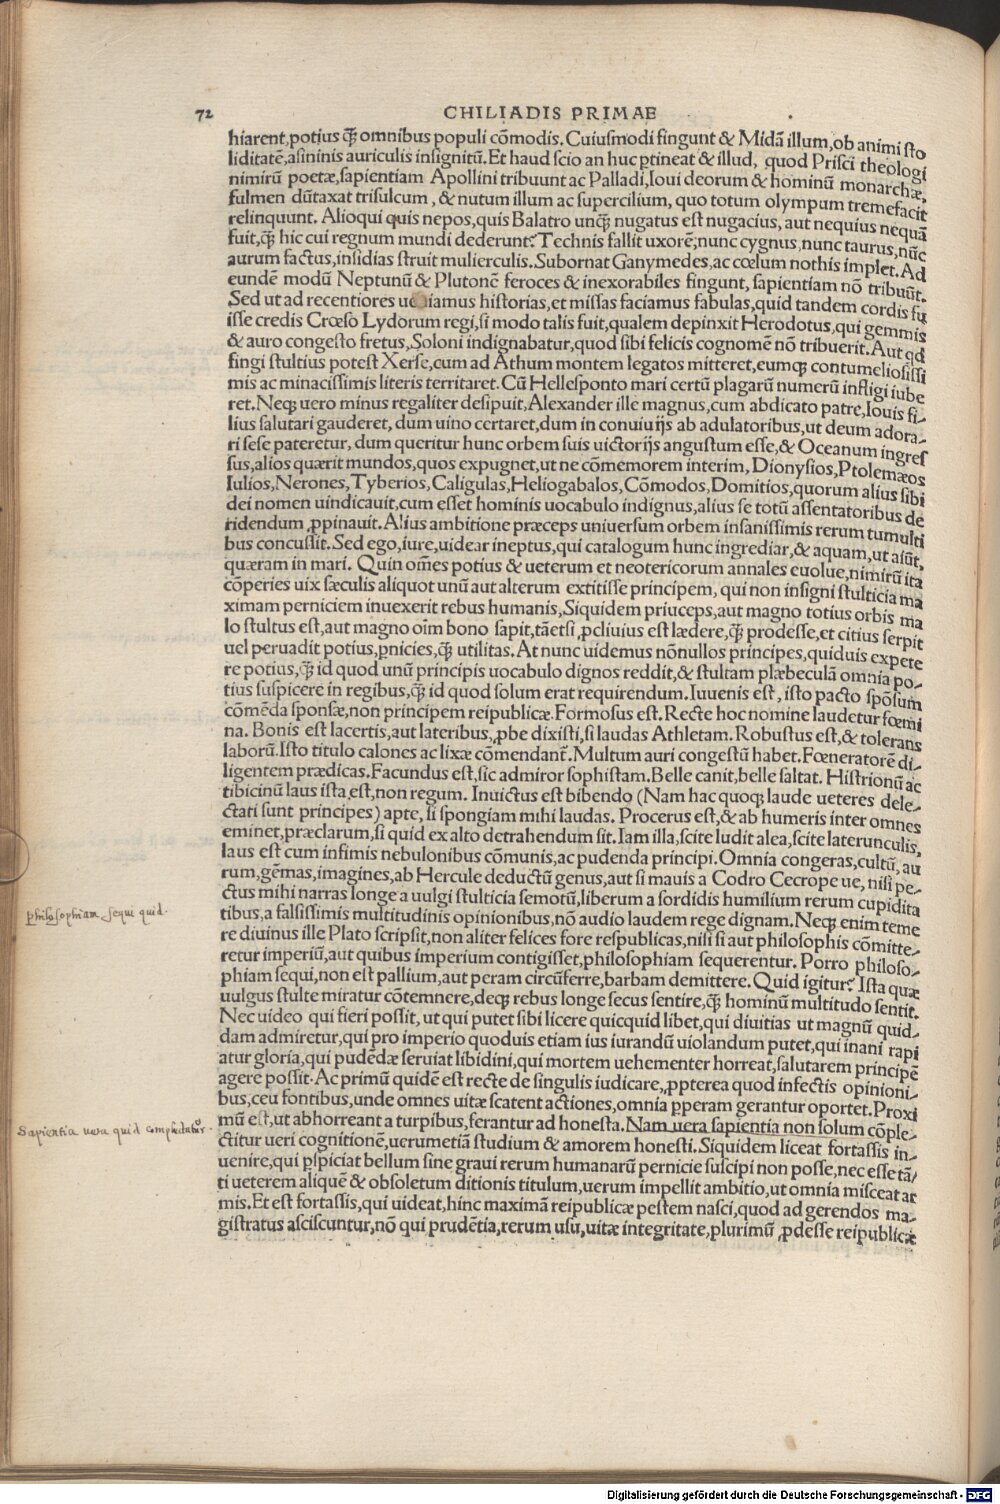 72 CHILIADIS PRIMAE
hiarent,potius q̃ omnibus populi cõmodis.Cuiusmodi fingunt & Midã illum,ob animi sto
liditatẽ,asininis auriculis insignitũ.Et haud scio an huc ꝑtineat & illud, quod Prisci theologi
nimirũ poetæ,sapientiam Apollini tribuunt ac Palladi,Ioui deorum & hominũ monarchæ,
fulmen dũtaxat trisulcum , & nutum illum ac supercilium, quo totum olympum tremefacit
relinquunt. Alioqui quis nepos,quis Balatro unq̃ nugatus est nugacius, aut nequius nequã
fuit,q̃ hic cui regnum mundi dederunt? Technis fallit uxorẽ,nunc cygnus,nunc taurus,nũc
aurum factus,insidias struit mulierculis.Subornat Ganymedes,ac cœlum nothis implet.Ad
eundẽ modũ Neptunũ & Plutonẽ feroces & inexorabiles fingunt, sapientiam nõ tribuũt.
Sed ut ad recentiores ueniamus historias,et missas faciamus fabulas,quid tandem cordis fu
isse credis Crœso Lydorum regi,si modo talis fuit,qualem depinxit Herodotus,qui gemmis
& auro congesto fretus,Soloni indignabatur,quod sibi felicis cognomẽ nõ tribuerit.Aut qd
fingi stultius potest Xerse,cum ad Athum montem legatos mitteret,eumq; contumeliosissi
mis ac minacissimis literis territaret.Cũ Hellesponto mari certũ plagarũ numerũ infligi iube
ret.Neq; uero minus regaliter desipuit,Alexander ille magnus,cum abdicato patre,Iouis fi-
lius salutari gauderet, dum uino certaret,dum in conuiuijs ab adulatoribus,ut deum adora-
ri sese pateretur, dum queritur hunc orbem suis uictorijs angustum esse,& Oceanum ingres
sus,alios quærit mundos,quos expugnet,ut ne cõmemorem interim, Dionysios,Ptolemæos
Iulios,Nerones,Tyberios,Caligulas,Heliogabalos,Cõmodos,Domitios,quorum alius sibi
dei nomen uindicauit,cum esset hominis uocabulo indignus,alius se totũ assentatoribus de
ridendum ꝓpinauit.Alius ambitione præceps uniuersum orbem insanissimis rerum tumulti
bus concussit.Sed ego,iure,uidear ineptus,qui catalogum hunc ingrediar,& aquam,ut aiũt,
quæram in mari. Quin om̃es potius & ueterum et neotericorum annales euolue,nimirũ ita
cõperies uix sæculis aliquot unũ aut alterum extitisse principem, qui non insigni stulticia ma
ximam perniciem inuexerit rebus humanis,Siquidem priuceps,aut magno totius orbis ma
lo stultus est,aut magno oĩm bono sapit,tãetsi ꝓcliuius est lædere,q̃ prodesse,et citius serpit
uel peruadit potius,ꝑnicies,q̃ utilitas.At nunc uidemus nõnullos principes,quiduis expete
re potius,q̃ id quod unũ principis uocabulo dignos reddit,& stultam plæbeculã omnia po-
tius suspicere in regibus,q̃ id quod solum erat requirendum.Iuuenis est , isto pacto spõsum
cõmẽda sponsæ,non principem reipublicæ.Formosus est.Recte hoc nomine laudetur fœmi
na. Bonis est lacertis,aut lateribus,ꝓbe dixisti,si laudas Athletam.Robustus est,& tolerans
laborũ.Isto titulo calones ac lixæ cõmendant̃.Multum auri congestũ habet.Fœneratorẽ di-
ligentem prædicas.Facundus est,sic admiror sophistam.Belle canit,belle saltat. Histrionũ ac
tibicinũ laus ista est,non regum. Inuictus est bibendo (Nam hac quoq; laude ueteres dele-
ctati sunt principes) apte, si spongiam mihi laudas. Procerus est,& ab humeris inter omnes
eminet,præclarum,si quid ex alto detrahendum sit.Iam illa,scite ludit alea,scite laterunculis,
laus est cum infimis nebulonibus cõmunis,ac pudenda principi.Omnia congeras,cultũ, au
rum,gẽmas,imagines,ab Hercule deductũ genus,aut si mauis a Codro Cecrope ue, nisi pe-
ctus mihi narras longe a uulgi stulticia semotũ,liberum a sordidis humilium rerum cupidita
tibus,a falsissimis multitudinis opinionibus,nõ audio laudem rege dignam.Neq; enim teme
re diuinus ille Plato scripsit,non aliter felices fore respublicas,nisi si aut philosophis cõmitte-
retur imperiũ,aut quibus imperium contigisset,philosophiam sequerentur. Porro philoso-
phiam sequi,non est pallium,aut peram circũferre,barbam demittere.Quid igitur? Ista quæ
uulgus stulte miratur cõtemnere,deq; rebus longe secus sentire,q̃ hominũ multitudo sentit.
Nec uideo qui fieri possit, ut qui putet sibi licere quicquid libet,qui diuitias ut magnũ quid-
dam admiretur,qui pro imperio quoduis etiam ius iurandũ uiolandum putet,qui inani rapi
atur gloria,qui pudẽdæ seruiat libidini,qui mortem uehementer horreat,salutarem principẽ
agere possit.Ac primũ quidẽ est recte de singulis iudicare,ꝓpterea quod infectis opinioni-
bus,ceu fontibus,unde omnes uitæ scatent actiones,omnia ꝑperam gerantur oportet.Proxi
mũ est,ut abhorreant a turpibus,ferantur ad honesta.Nam uera sapientia non solum cõple-
ctitur ueri cognitionẽ,uerumetiã studium & amorem honesti.Siquidem liceat fortassis in-
uenire,qui ꝑspiciat bellum sine graui rerum humanarũ pernicie suscipi non posse,nec esse tã/
ti ueterem aliquẽ & obsoletum ditionis titulum,uerum impellit ambitio,ut omnia misceat ar
mis.Et est fortassis,qui uideat,hinc maximã reipublicæ pestem nasci,quod ad gerendos ma-
gistratus asciscuntur,nõ qui prudẽtia,rerum usu,uitæ integritate,plurimũ ꝓdesse reipublicæ
philosophiam sequi quid.
Sapientia uera quid complectatur.
Digitalisierung gefördert durch die Deutsche Forschungsgemeinschaft - DFG